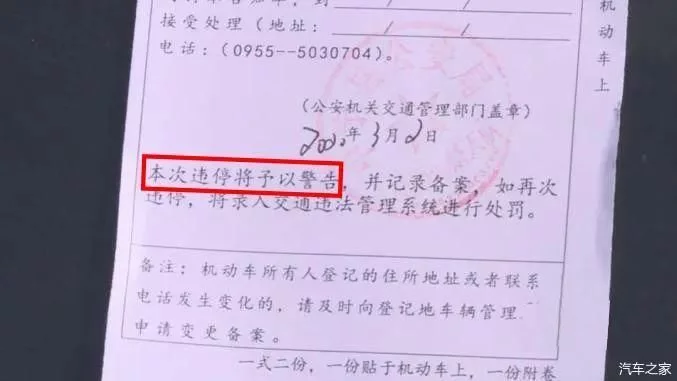 接受处理(地址: / / /
电话:(0955--5030704)。
机动车上
(公安机关交通管理部门盖章)
2020年3月2日
本次违停将予以警告,并记录备案,如再次
违停,将录入交通违法管理系统进行处罚。
备注:机动车所有人登记的住所地址或者联系
电话发生变化的,请及时向登记地车辆管理
申请变更备案。
一式二份,一份贴于机动车上,一份附卷
汽车之家